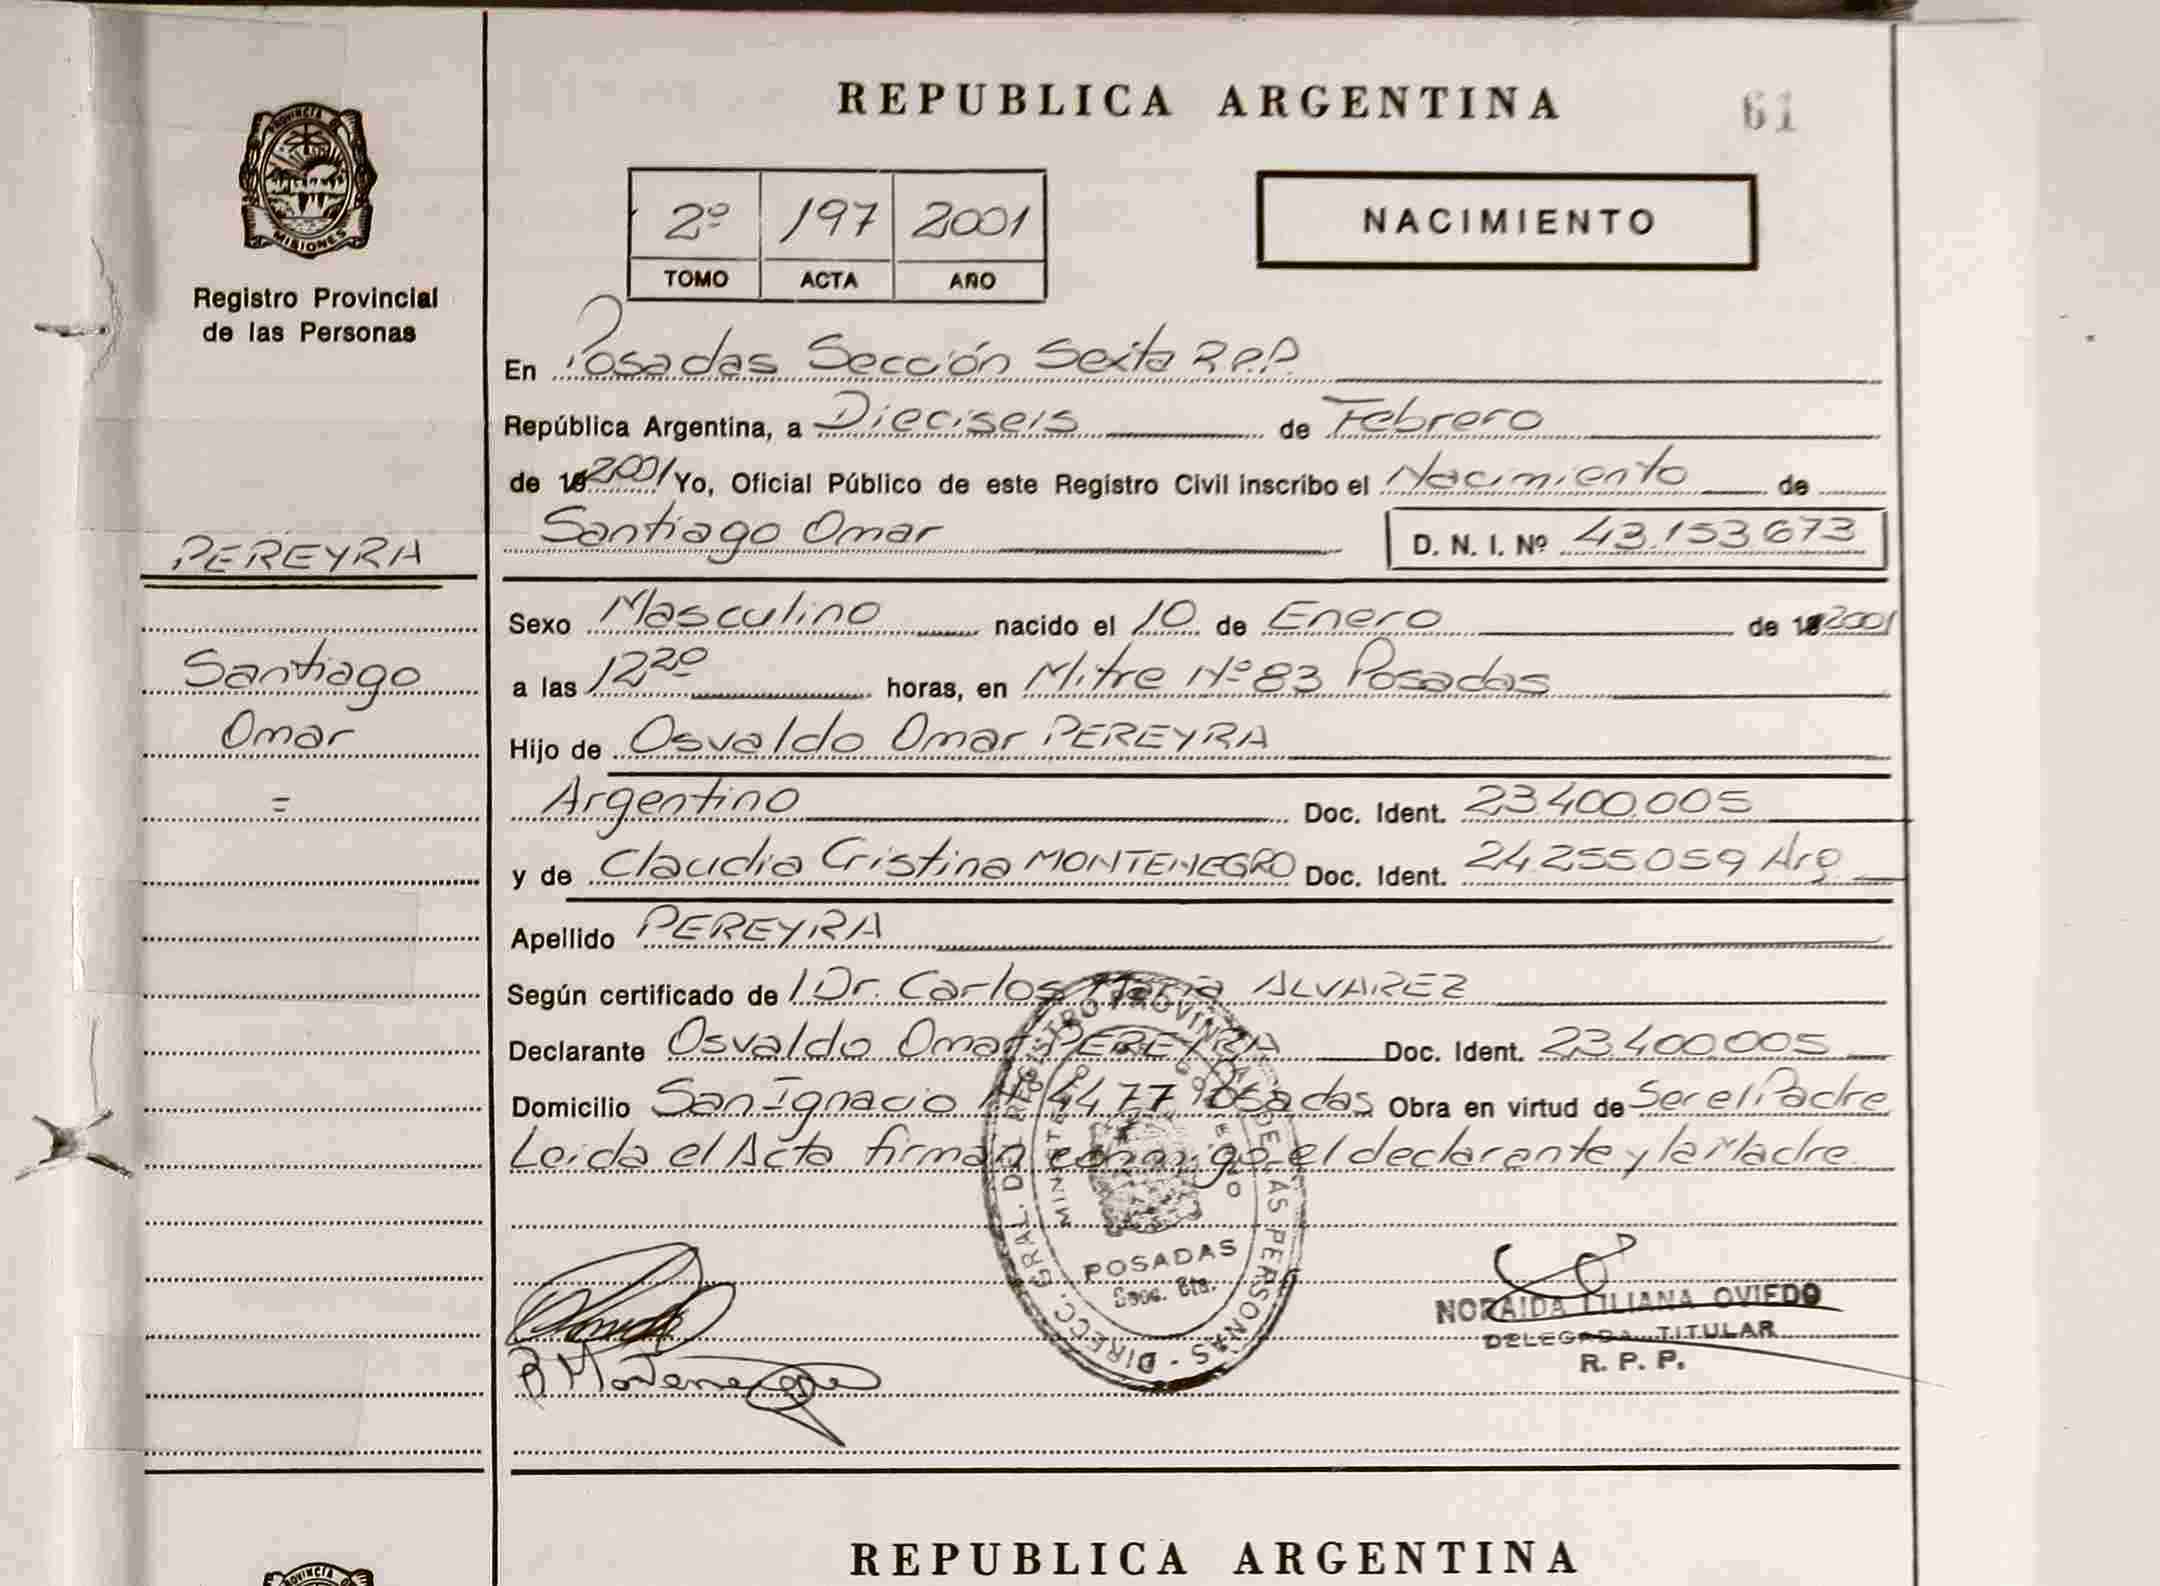 REPUBLICA ARGENTINA
61
PROVINCIA D
MISIONES
Registro Provincial
de las Personas
2º 197 2001
TOMO ACTA AÑO
NACIMIENTO
En Posadas Sección Sexta R.P.P.
República Argentina, a Dieciseis de Febrero
de 19 2001 Yo, Oficial Público de este Registro Civil inscribo el Nacimiento de
Santiago Omar D. N. I. Nº 43.153.673
PEREYRA
Santiago
Omar
=
Sexo Masculino nacido el 10 de Enero de 19 2001
a las 12 20 horas, en Mitre Nº 83 Posadas
Hijo de Osvaldo Omar PEREYRA
Argentino Doc. Ident. 23.400.005
y de Claudia Cristina MONTENEGRO Doc. Ident. 24.255.059 Arg.
Apellido PEREYRA
Según certificado de Dr. Carlos María ALVAREZ
Declarante Osvaldo Omar PEREYRA Doc. Ident. 23.400.005
Domicilio San Ignacio Nº 4477 Posadas Obra en virtud de Ser el Padre
Leida el Acta firman conmigo el declarante y la Madre
DIRECC. GRAL. DEL REGISTRO PROVINCIAL DE LAS PERSONAS
MINISTERIO DE GOBIERNO
POSADAS
Secc. 6ta.
Montenegro
NORAIDA LILIANA OVIEDO
DELEGADA TITULAR
R. P. P.
REPUBLICA ARGENTINA
PROVINCIA D